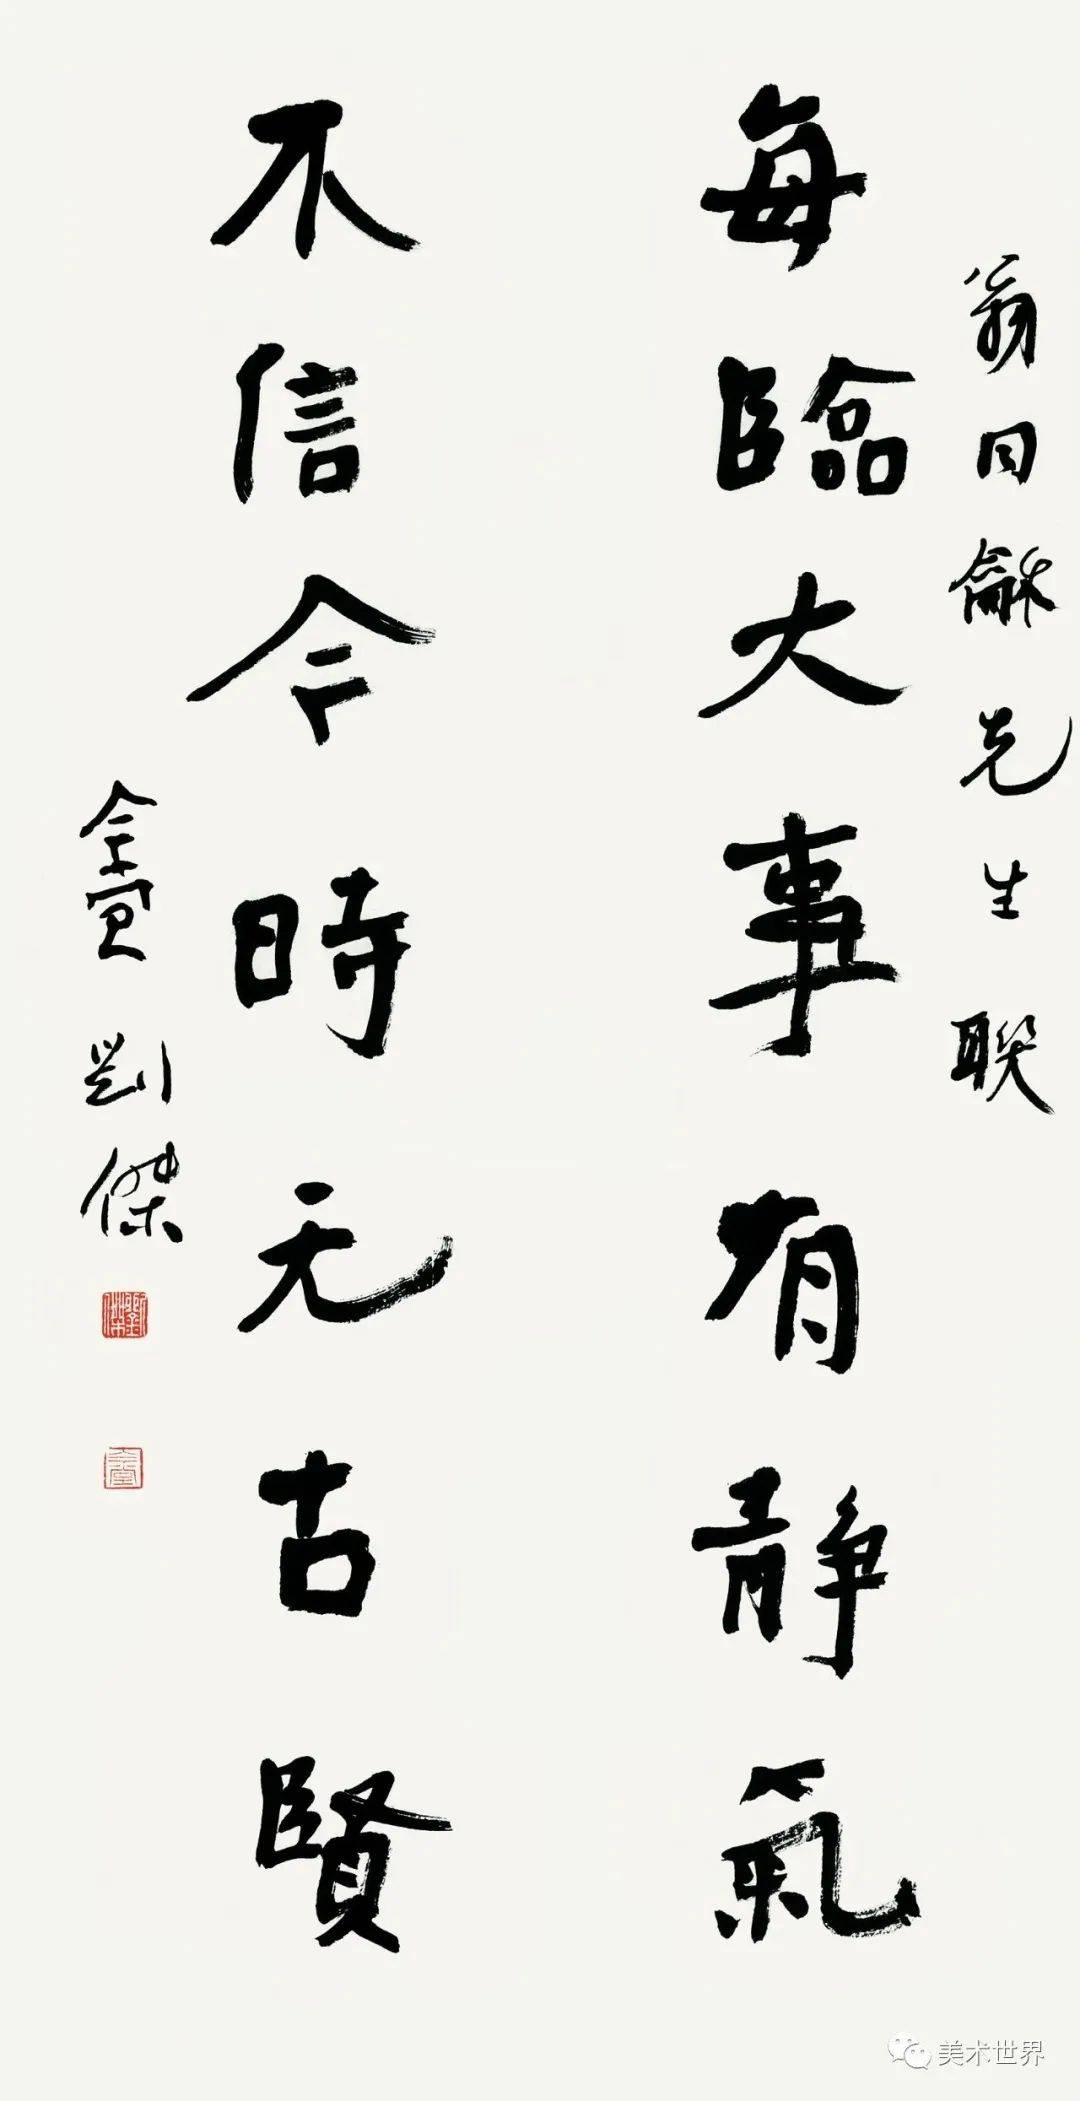 翁同龢先生聯
每臨大事有静氣
不信今時无古賢
劉傑
劉傑
美术世界